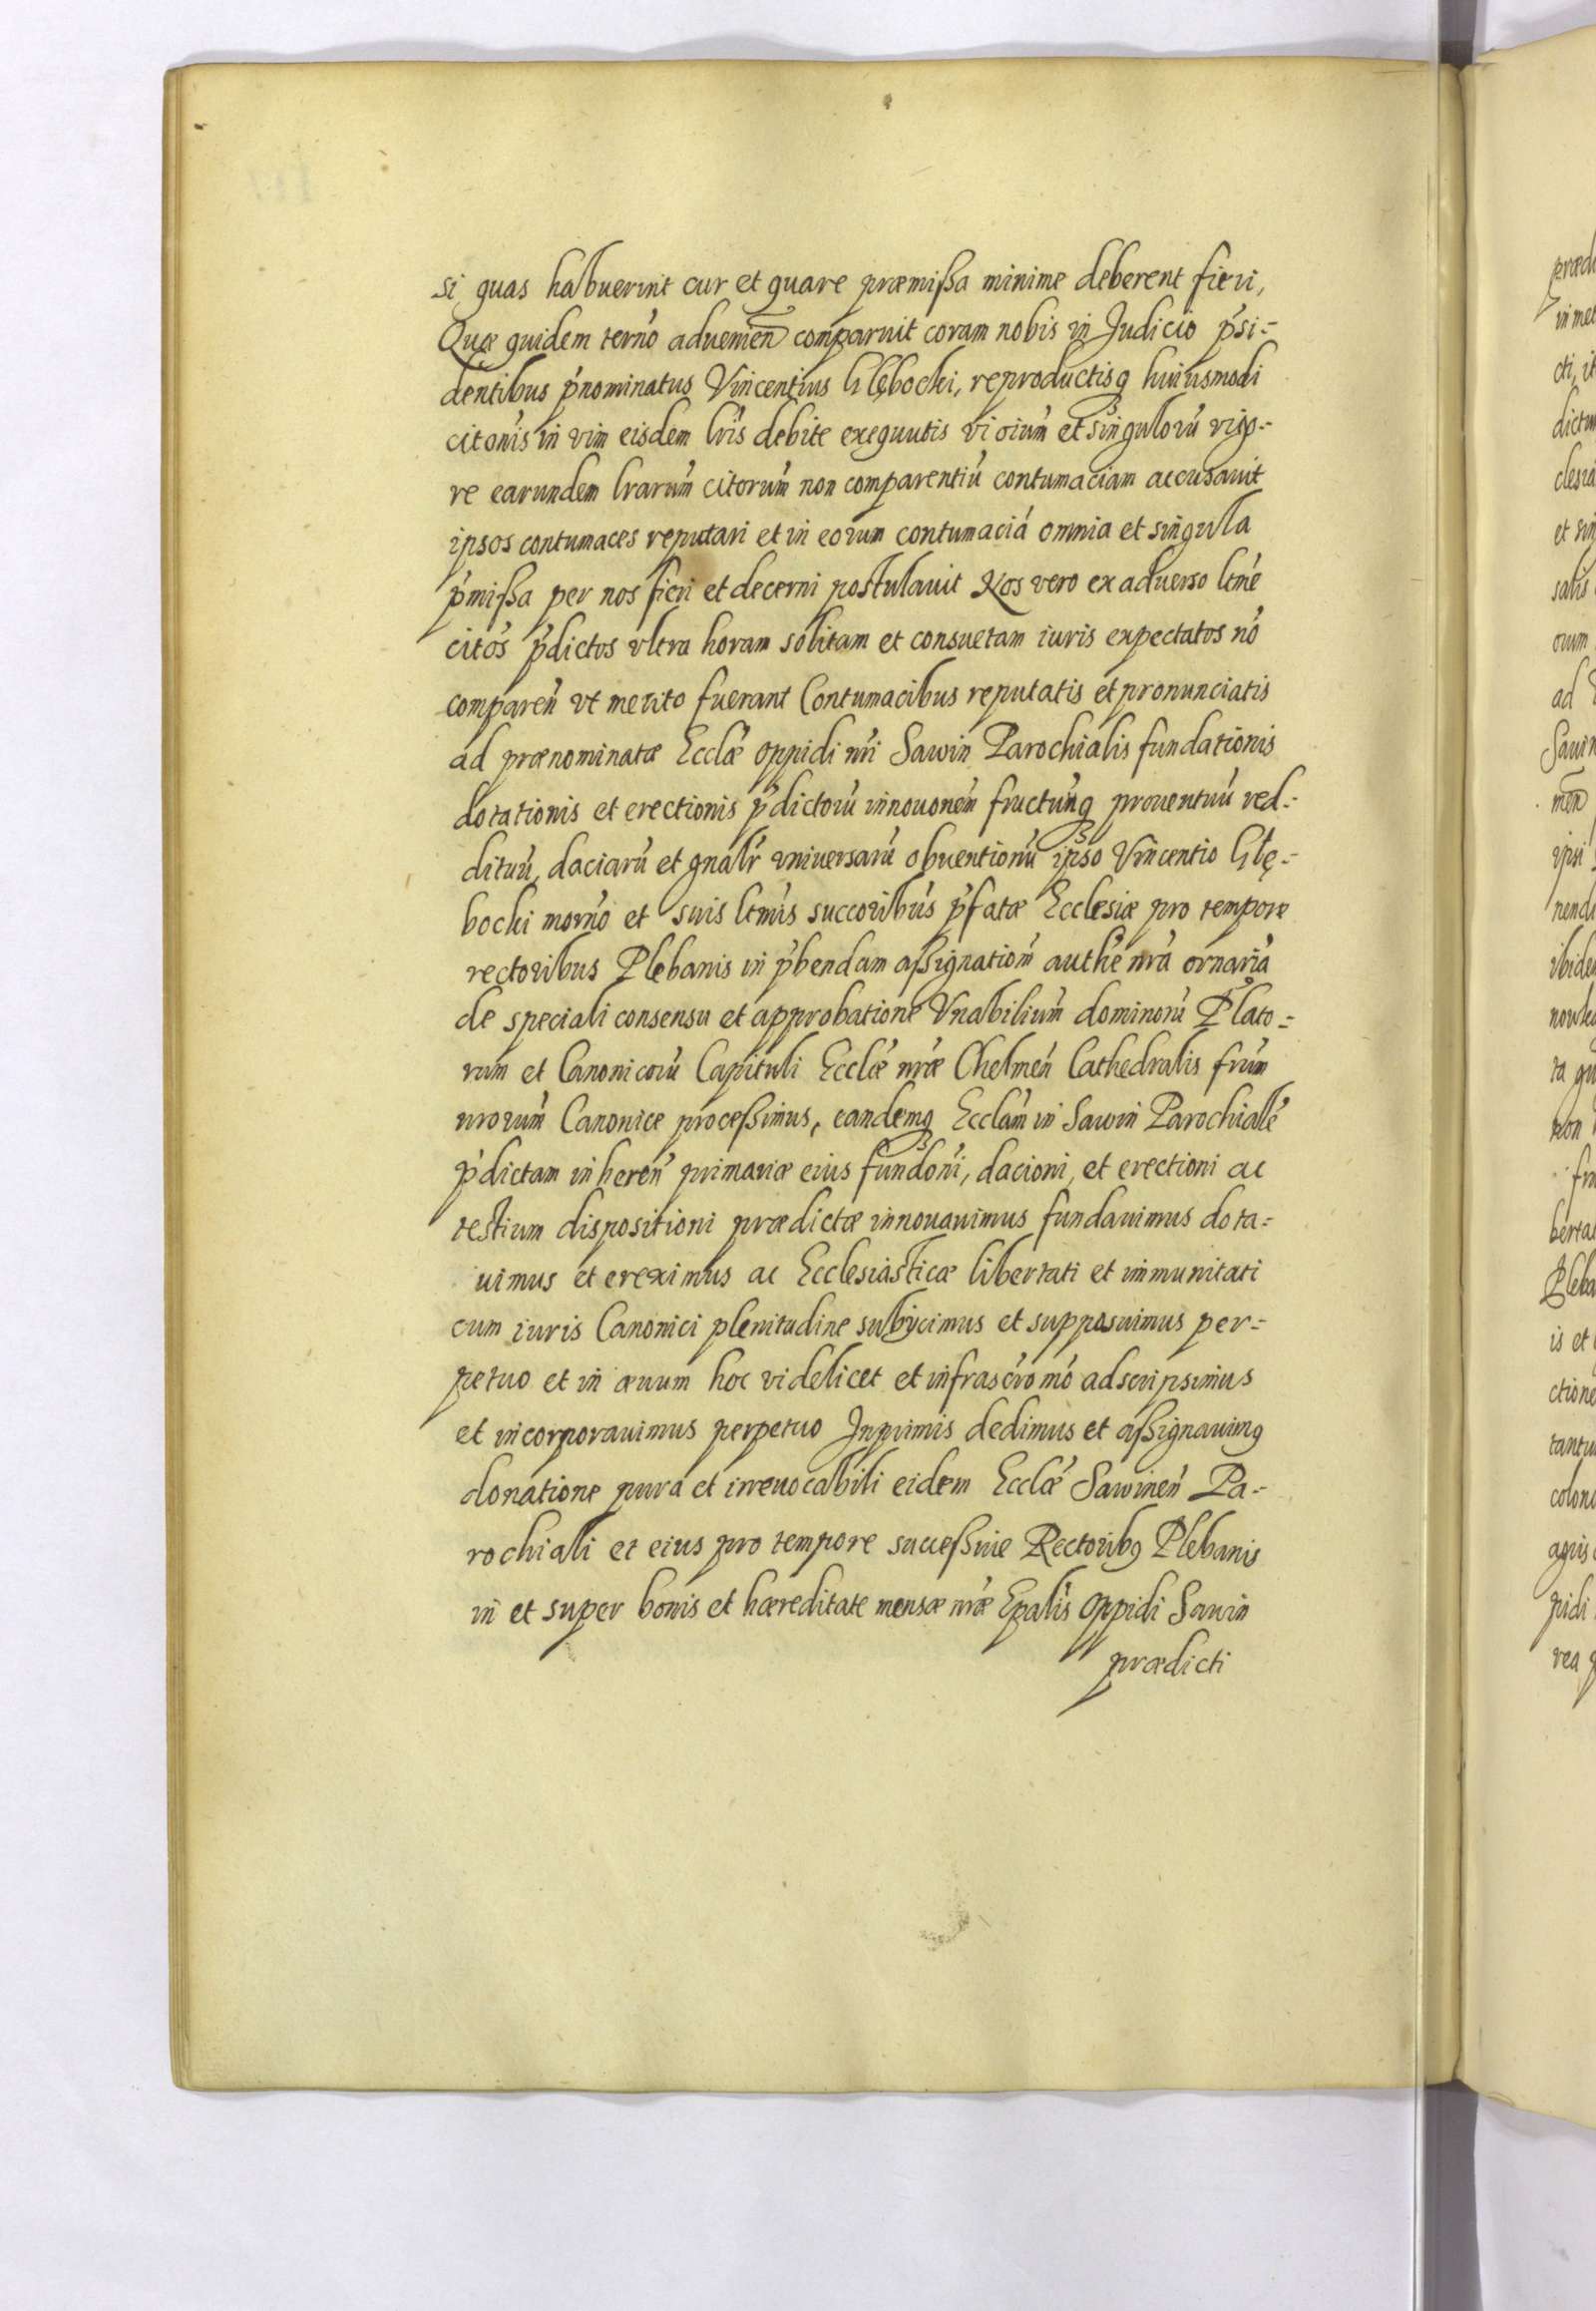 si quas habuerint cur et quare præmissa minime deberent fieri,
Quæ quidem termo aduenien comparuit coram nobis in Judicio pŕsi-
dentibus pŕnominatus Vincentius Głębocki, reproductisq huiusmodi
citonis in vim eisdem lris debite exequutis vi oium et singuloru vigo-
re earundem lrarum citorum non comparentiu contumaciam accusauit
ipsos contumaces reputari et in eorum contumacia omnia et singula
pŕmissa per nos fieri et decerni postulauit Nos vero ex aduerso ltme
citos pŕdictos vltra horam solitam et consuetam iuris expectatos no
comparen vt merito fuerant Contumacibus reputatis et pronunciatis
ad prænominatæ Ecclæ oppidi nri Sawin Parochialis fundationis
dotationis et erectionis pŕdictoru innouonem fructuumq prouentuu red-
dituu, daciaru et gnalr vniuersaru obuentionu ipso Vincentio Głę-
bocki moderno et suis ltmis succoribus pŕfatæ Ecclesiæ pro tempore
rectoribus Plebanis in pŕbendam assignationem authe nra ornaria
de speciali consensu et approbatione Vnabilium dominoru Plato-
rum et Canonicoru Capituli Ecclæ nræ Chelmen Cathedralis frum
nrorum Canonice processimus, eandemq Ecclam in Sawin Parochiale
pŕdictam inheren primariæ eius fundoni, dacioni, et erectioni ac
testium dispositioni prædictæ innouauimus fundauimus dota-
uimus et ereximus ac Ecclesiasticæ libertati et immunitati
cum iuris Canonici plenitudine subijcimus et supposuimus per-
petuo et in æuum hoc videlicet et infrascro mo adscripsimus
et incorporauimus perpetuo Inprimis dedimus et assignauimq
donatione pura et irreuocabili eidem Ecclæ Sawinen Pa-
rochiali et eius pro tempore successiue Rectoribq Plebanis
in et super bonis et hæreditate mensæ nræ Epalis Oppidi Sawin
prædicti